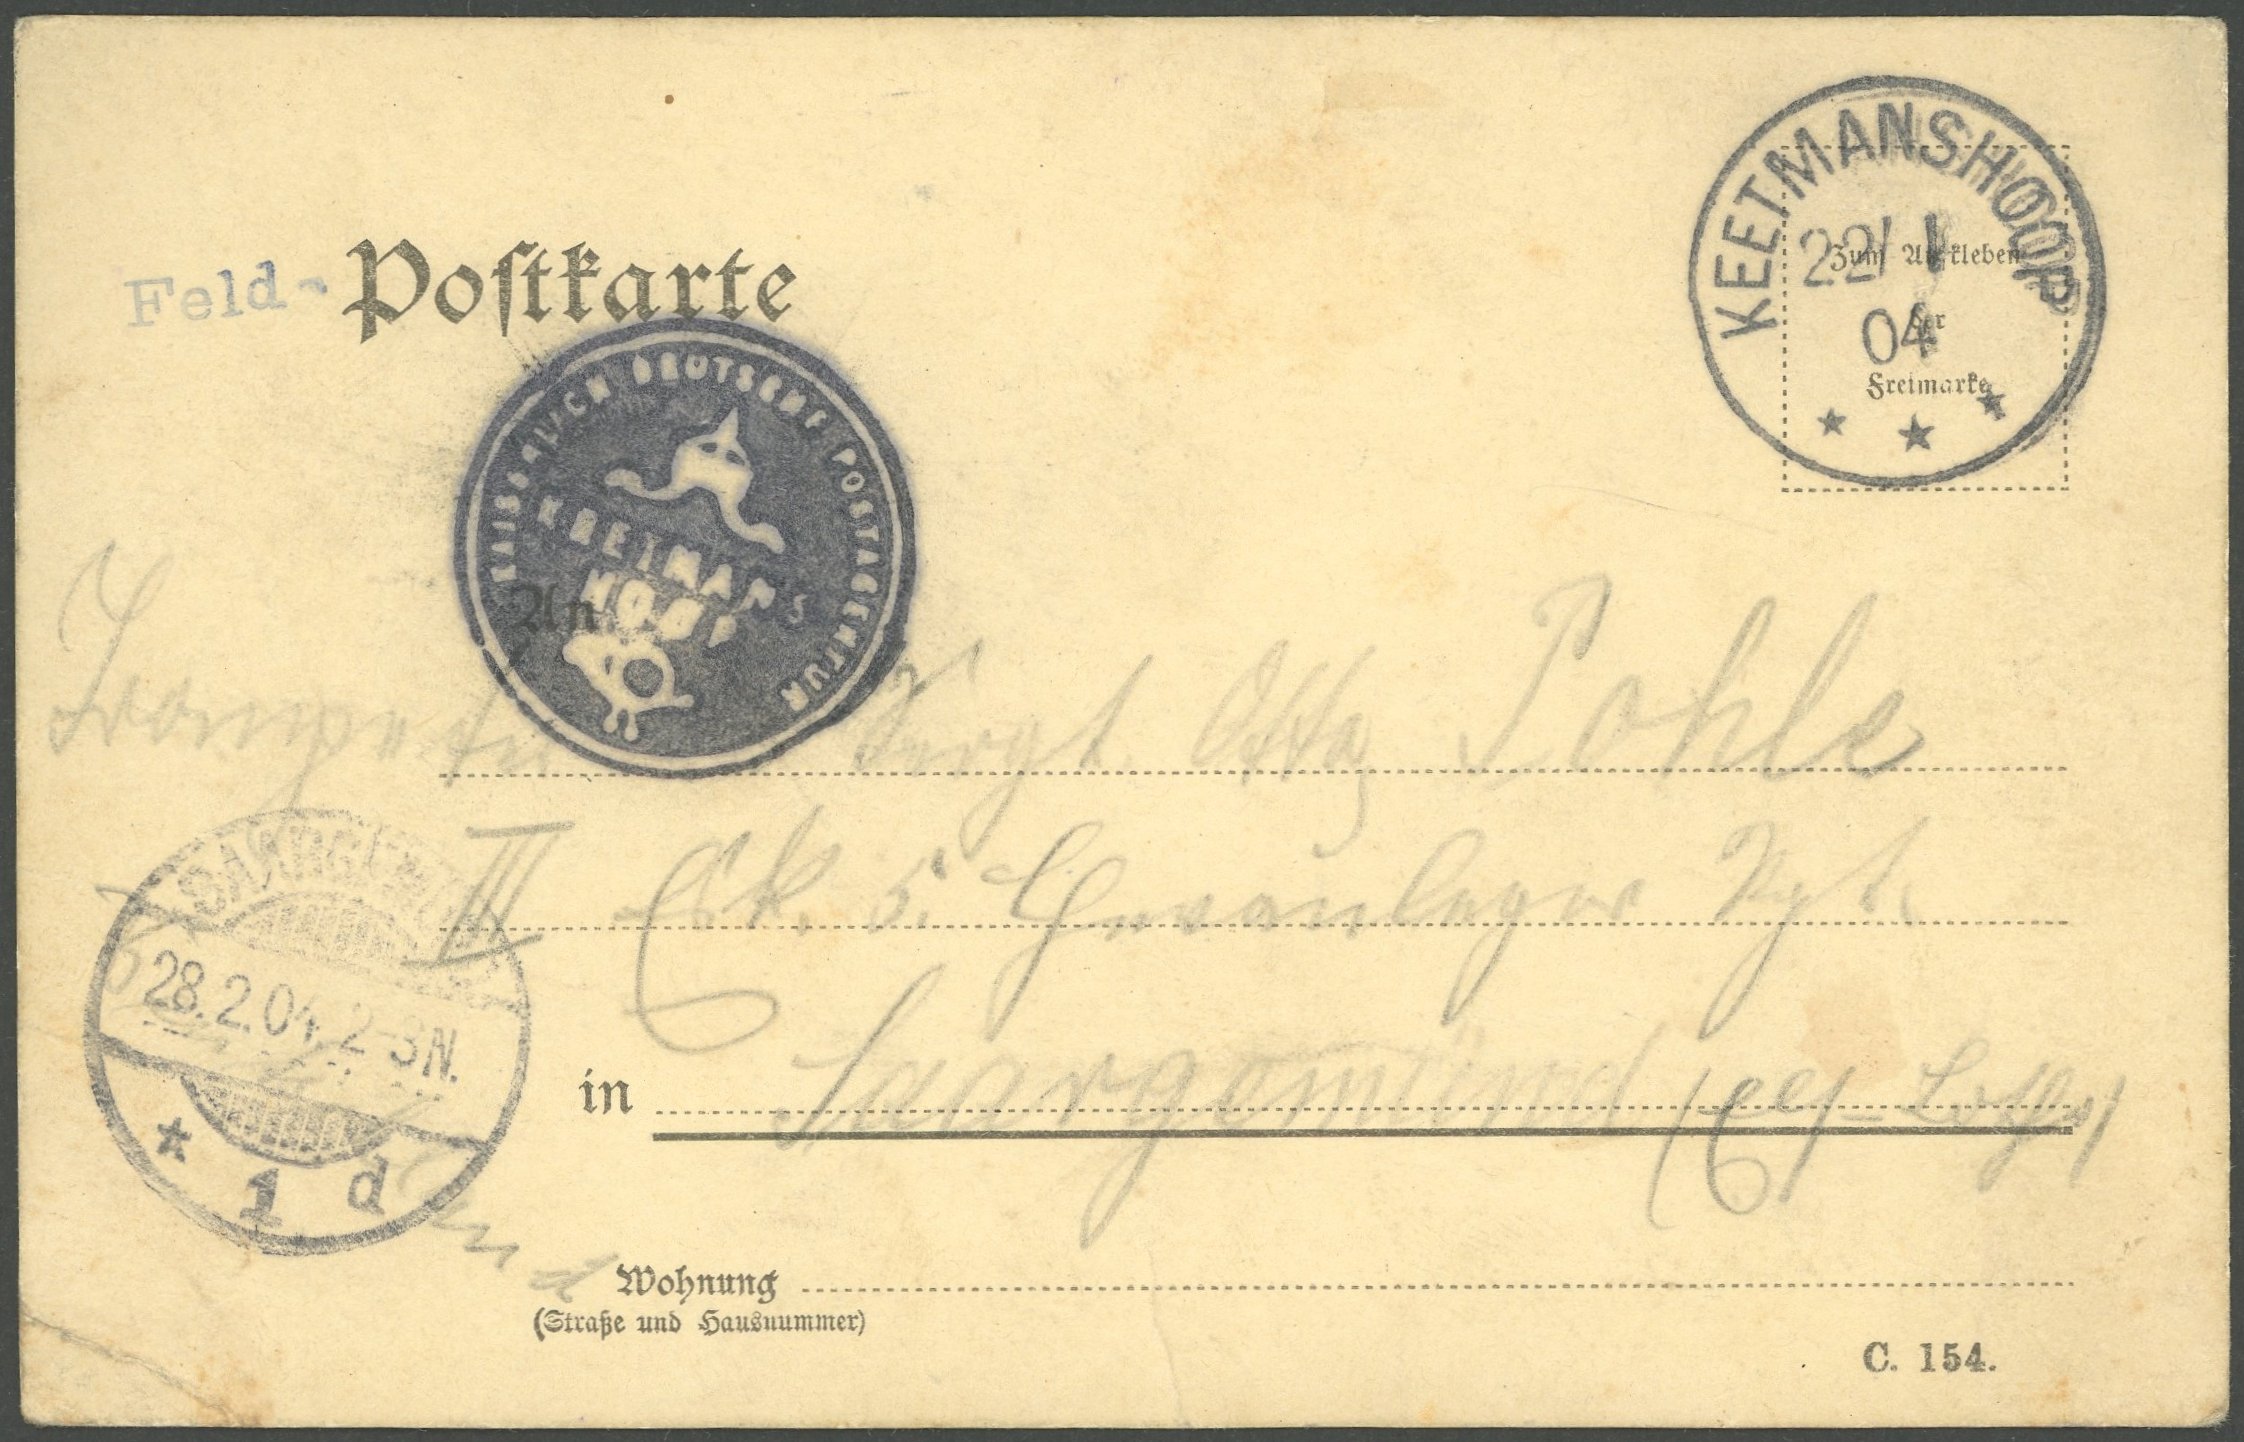 KEETMANSHOOP
22/1
04
Zum Aufkleben
der
Freimarke
Feld-Postkarte
KAISERLICH DEUTSCHE POSTAGENTUR
KEETMANS
HOOP
An
Trompeter Sergt. Otto Pohle
III Esk. 5. Chevauleger Rgt.
SAARGEMÜND
28.2.04. 2-3N.
* 1 d
in Saargemünd (Els-Lothr)
Wohnung
(Straße und Hausnummer)
C. 154.